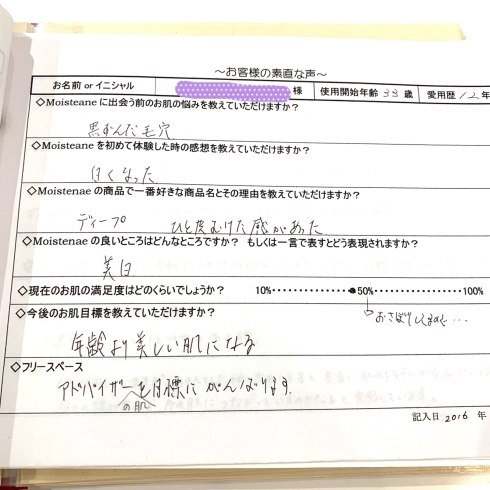 ～お客様の素直な声～
お名前 or イニシャル 様 使用開始年齢 33 歳 愛用歴 12 年
◇Moisteane に出会う前のお肌の悩みを教えていただけますか？
黒ずんだ毛穴
◇Moisteane を初めて体験した時の感想を教えていただけますか？
白くなった
◇Moistenae の商品で一番好きな商品名とその理由を教えていただけますか？
ディープ ひと皮むけた感があった
◇Moistenae の良いところはどんなところですか？ もしくは一言で表すとどう表現されますか？
美白
◇現在のお肌の満足度はどのくらいでしょうか？ 10% 50% 100%
おさぼりしてるので…
◇今後のお肌目標を教えていただけますか？
年齢より美しい肌になる
◇フリースペース
アドバイザーの肌を目標にがんばります
記入日 2016 年